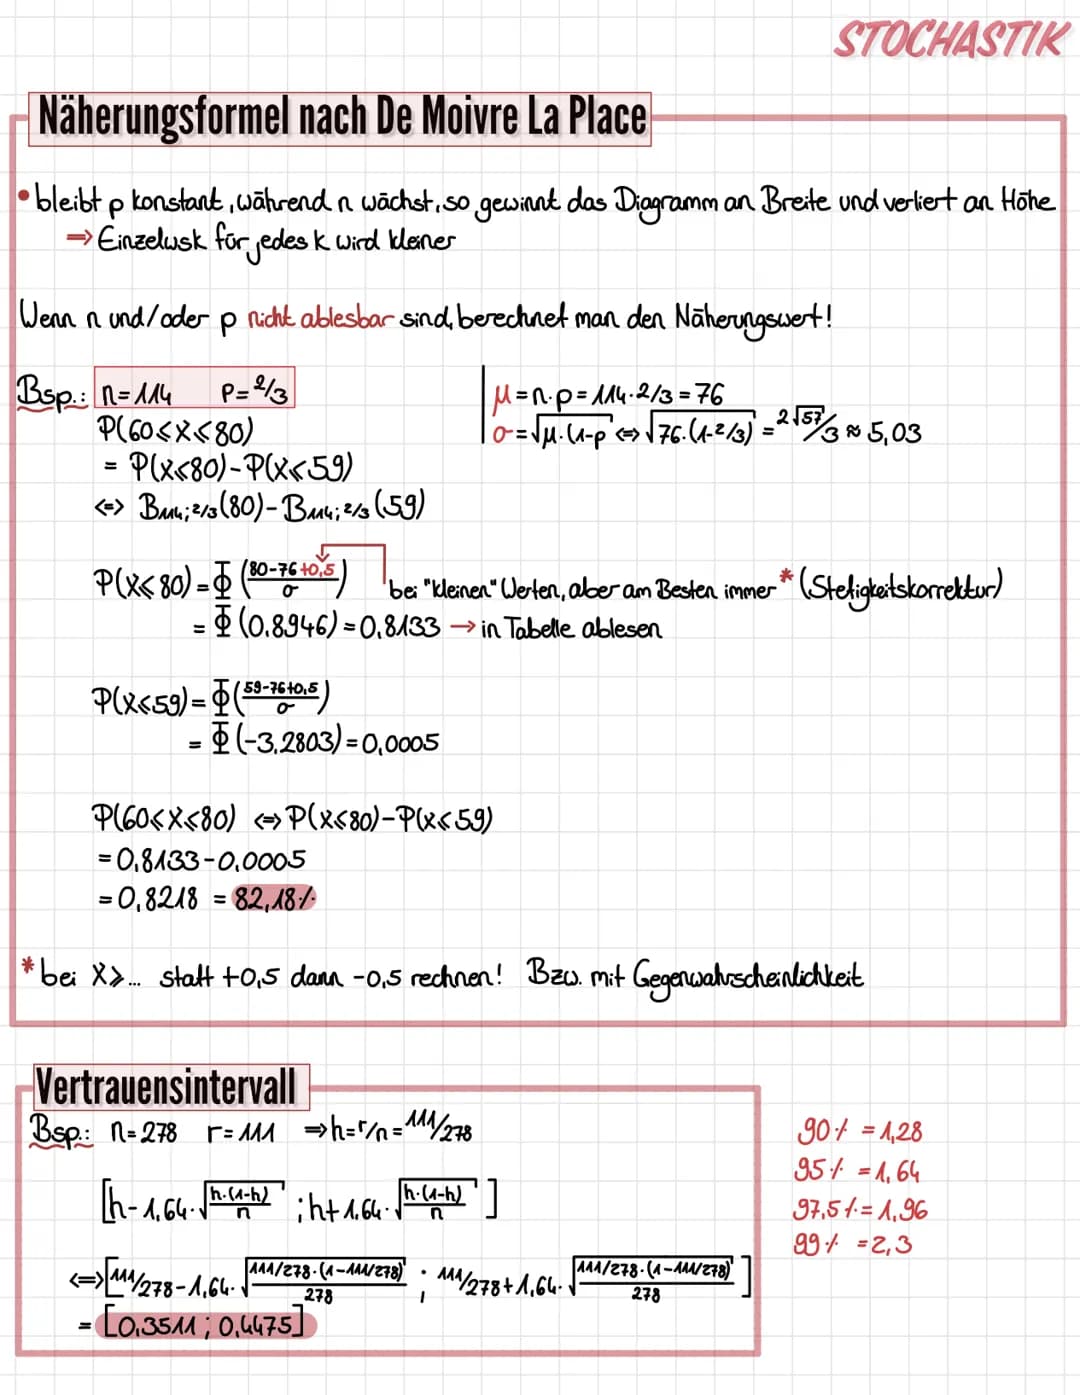 STOCHASTIK
Näherungsformel nach De Moivre La Place
• bleibt p konstant, während n wächst, so gewinnt das Diagramm an Breite und verliert an Höhe
⇒ Einzelwsk für jedes k wird kleiner
Wenn n und/oder p nicht ablesbar sind, berechnet man den Näherungswert!
Bsp.: n=114 p=2/3
μ=n·p=114·2/3=76
P(60≤X≤80)
σ=√μ·(1-p ⇔ √76·(1-2/3) = 2√57/3 ≈ 5,03
= P(X≤80)-P(X≤59)
⇔ B114;2/3(80)-B114;2/3(59)
P(X≤80)=Φ(80-76+0,5/σ) bei "kleinen" Werten, aber am Besten immer * (Stetigkeitskorrektur)
= Φ(0.8946)=0,8133 → in Tabelle ablesen
P(X≤59)=Φ(59-76+0,5/σ)
= Φ(-3,2803)=0,0005
P(60≤X≤80) ⇔ P(X≤80)-P(X≤59)
=0,8133-0,0005
=0,8218 = 82,18%
* bei X≥... statt +0,5 dann -0,5 rechnen! Bzw. mit Gegenwahrscheinlichkeit
Vertrauensintervall
Bsp.: n=278 r=111 ⇒h=r/n=111/278
[h-1,64·√h·(1-h)/n ; h+1,64·√h·(1-h)/n]
⇔[111/278-1,64·√111/278·(1-111/278)/278 ; 111/278+1,64·√111/278·(1-111/278)/278]
= [0,3511; 0,4475]
90% =1,28
95% =1,64
97,5%=1,96
99% =2,3